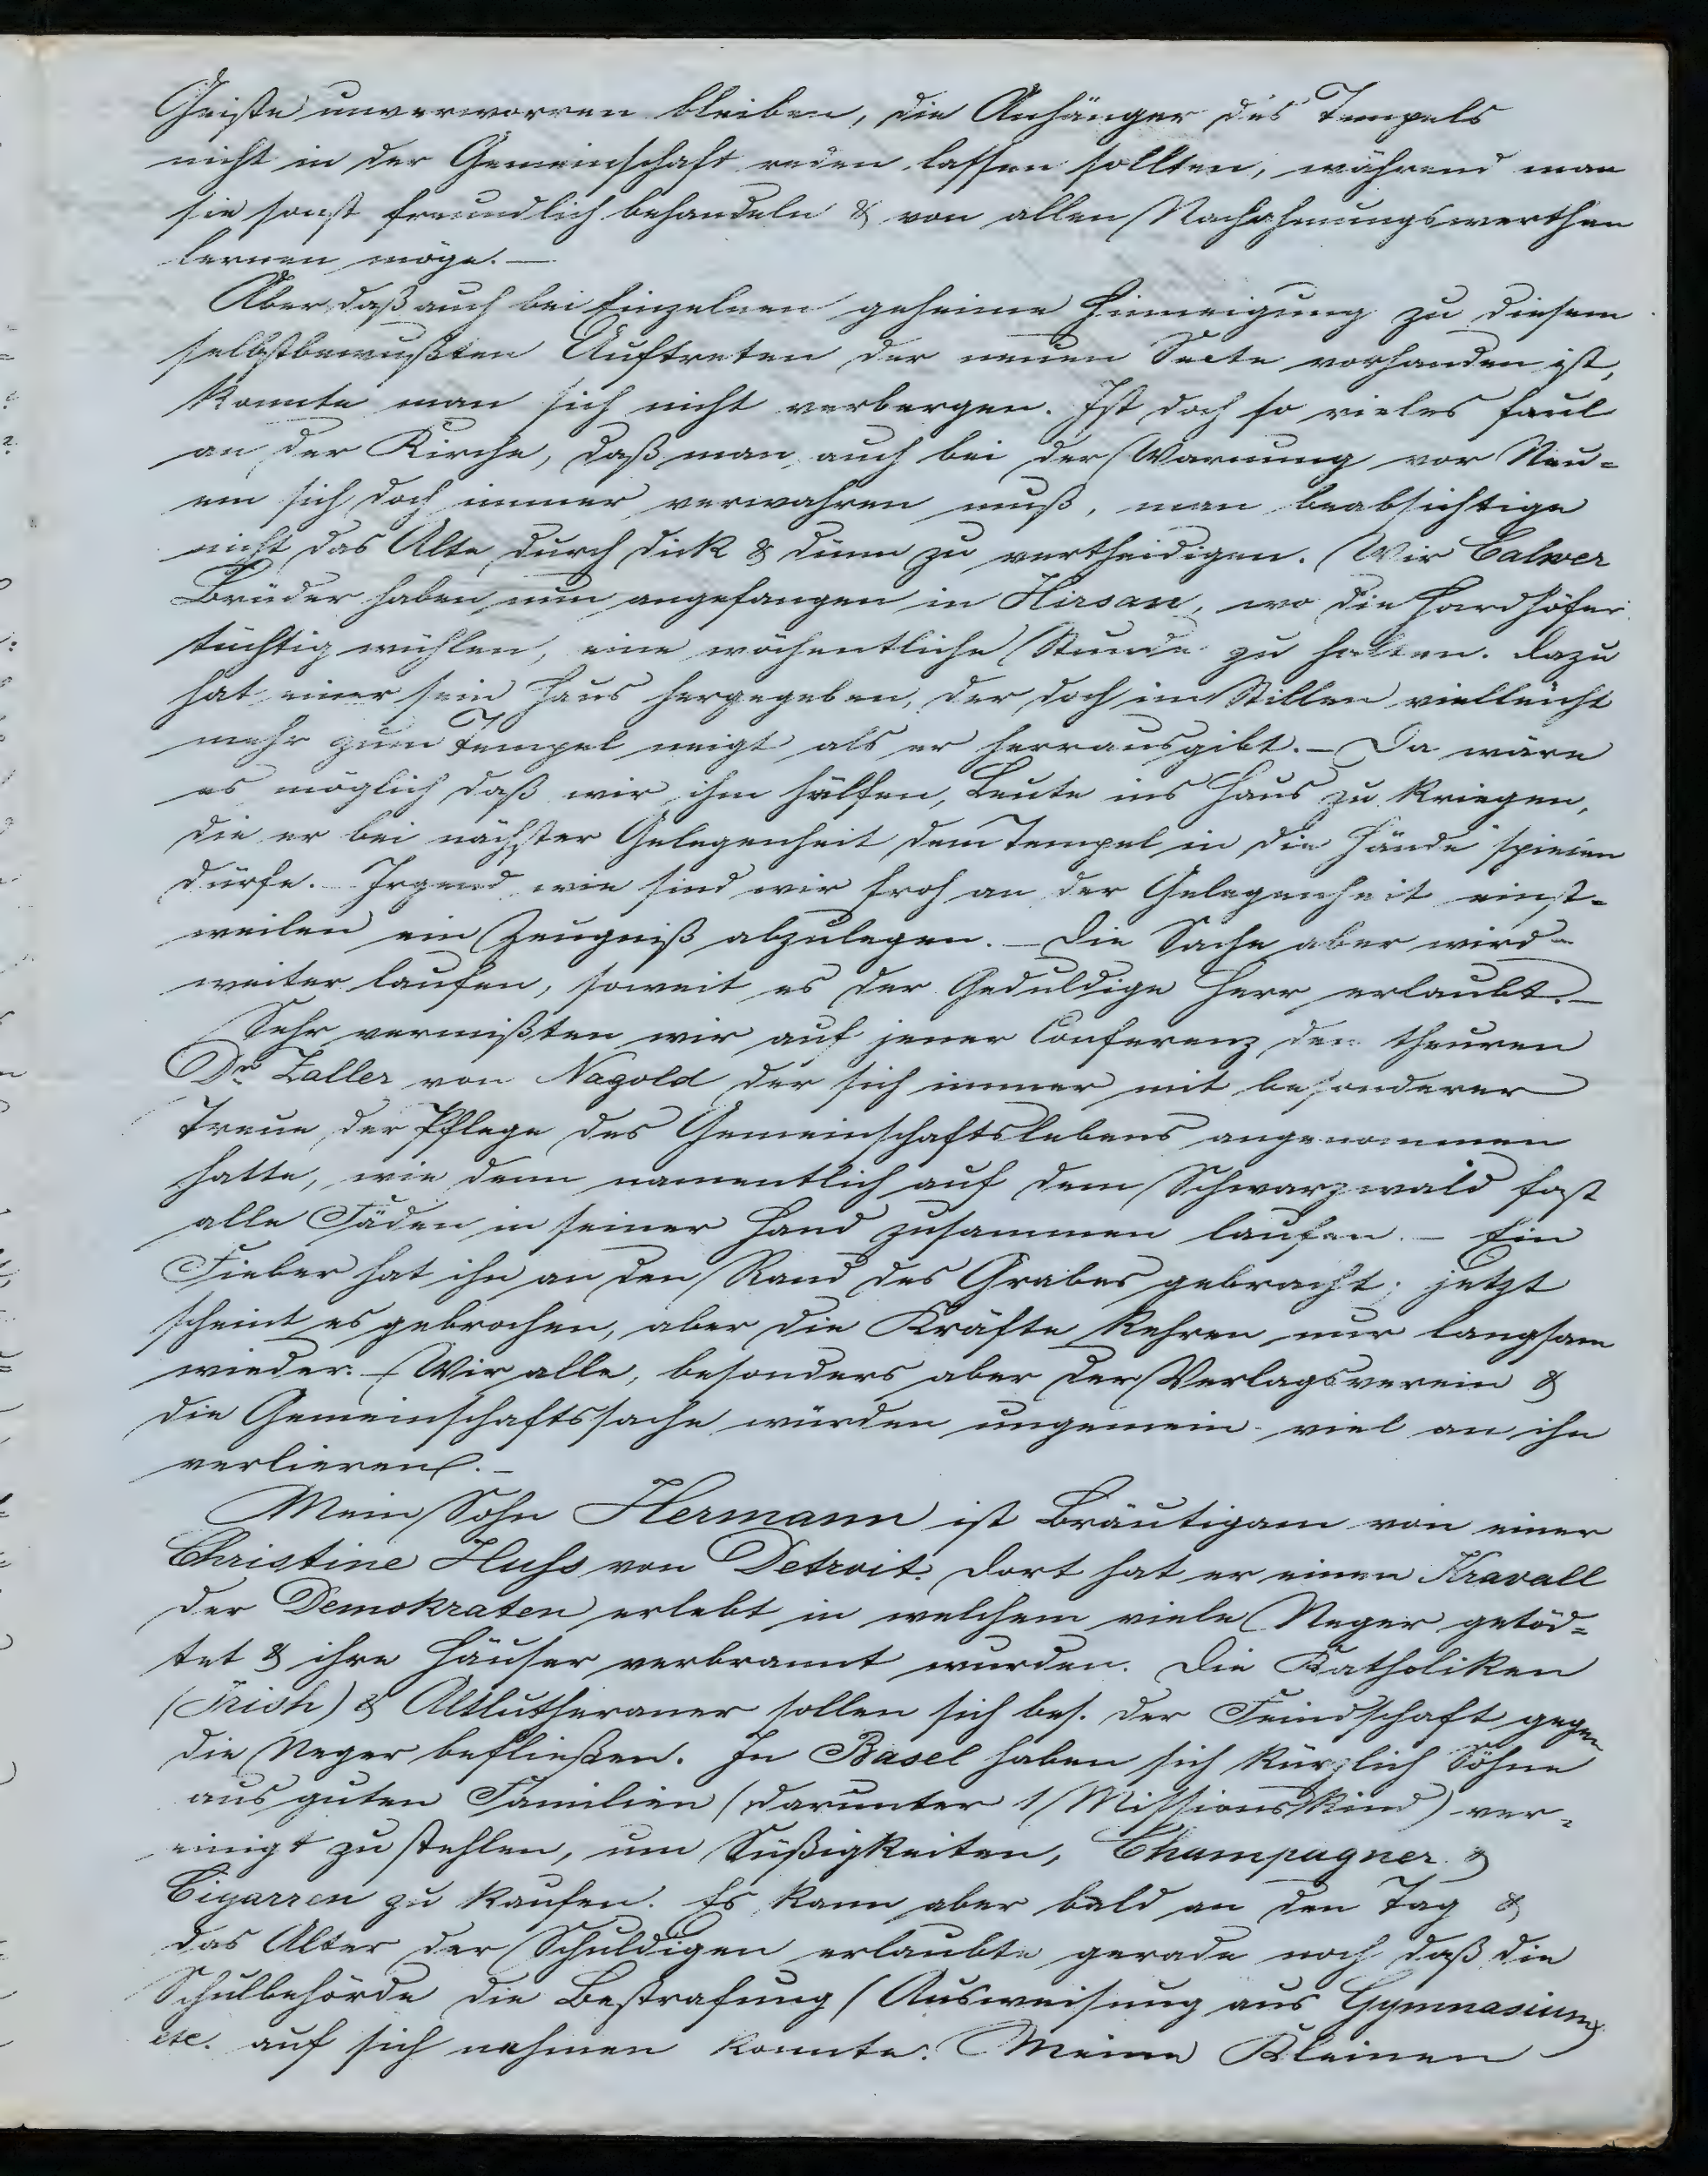 Geiste unverworren bleiben, die Anhänger des Tempels
nicht in der Gemeinschaft reden lassen sollten, während man
sie sonst freundlich behandeln & von allen Nachahmungswerthen
lernen möge. —
Aber daß auch bei Einzelnen geheime Hinneigung zu diesem
selbstbewußten Auftreten der neuen Secte vorhanden ist,
konnte man sich nicht verbergen. Ist doch so vieles faul
an der Kirche, daß man auch bei der Warnung vor Neu-
em sich doch immer verwahren muß, man beabsichtige
nicht das Alte durch dick & dünn zu vertheidigen. Wir Calwer
Brüder haben nun angefangen in Hirsau, wo die Hardhöfer
tüchtig wühlen, eine wöchentliche Stunde zu halten. Dazu
hat einer sein Haus hergegeben, der doch im Stillen vielleicht
mehr zum Tempel neigt als er herrausgibt. – Da wäre
es möglich daß wir ihm hälfen, Leute ins Haus zu kriegen,
die er bei nächster Gelegenheit dem Tempel in die Hände spielen
dürfe. Irgend wie sind wir froh an der Gelegenheit einst-
weilen ein Zeugniß abzulegen. – Die Sache aber wird
weiter laufen, soweit es der Geduldige Herr erlaubt. –
Sehr vermißten wir auf jener Conferenz den theuren
Dr Zaller von Nagold der sich immer mit besonderer
Treue der Pflege des Gemeinschaftslebens angenommen
hatte, wie denn namentlich auf dem Schwarzwald fast
alle Fäden in seiner Hand zusammen laufen. – Ein
Fieber hat ihn an den Rand des Grabes gebracht; jetzt
scheint es gebrochen, aber die Kräfte kehren nur langsam
wieder. – Wir alle, besonders aber der Verlagsverein &
die Gemeinschaftssache würden ungemein viel an ihn
verlieren. –
Mein Sohn Hermann ist Bräutigam von einer
Christine Huhs von Detroit. Dort hat er einen Kravall
der Demokraten erlebt in welchem viele Neger getöd-
tet & ihre Häuser verbrannt wurden. Die Katholiken
(Irish) & Altlutheraner sollen sich bes. der Feindschaft gegen
die Neger befließen. In Basel haben sich kürzlich Söhne
aus guten Familien (darunter 1 Missionskind) ver-
einigt zu stehlen, um Süßigkeiten, Champagner &
Cigarren zu kaufen. Es kam aber bald an den Tag &
das Alter der Schuldigen erlaubte gerade noch daß die
Schulbehörde die Bestrafung (Ausweisung aus Gymnasium)
etc. auf sich nehmen konnte. Meine Kleinen